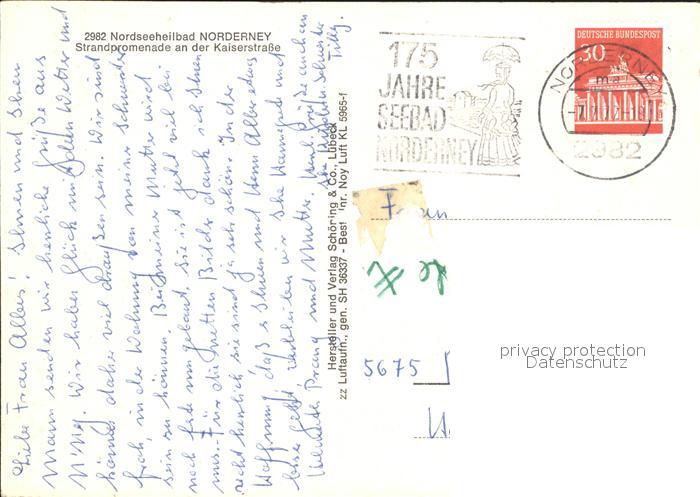 2982 Nordseeheilbad NORDERNEY
Strandpromenade an der Kaiserstraße
175
JAHRE
SEEBAD
NORDERNEY
DEUTSCHE BUNDESPOST
30
NORDERNEY
2982
Liebe Frau Albers! Ihnen und Ihrem
Mann senden wir herzliche Grüße aus
N'ney. Wir haben Glück mit dem Wetter und
können daher viel draußen sein. Wir sind
froh, in der Wohnung von meiner Schwester
sein zu können. Bei meiner Mutter wird
noch feste umgebaut, sie ist jetzt viel bei
uns. Für die netten Bilder dank ich Ihnen
recht herzlich sie sind ja sehr schön. In der
Hoffnung, daß es Ihnen und Ihrem Albert etwas
besser geht, verbleiben wir Ihre Hannegret und
und Mutter. Viele Grüße auch an
Ihre Schwester
Tilly.
Hersteller und Verlag Schöning & Co., Lübeck
zz Luftaufn., gen. SH 36337 - Best nr. Noy Luft KL 5965-f
F
5675
privacy protection
Datenschutz